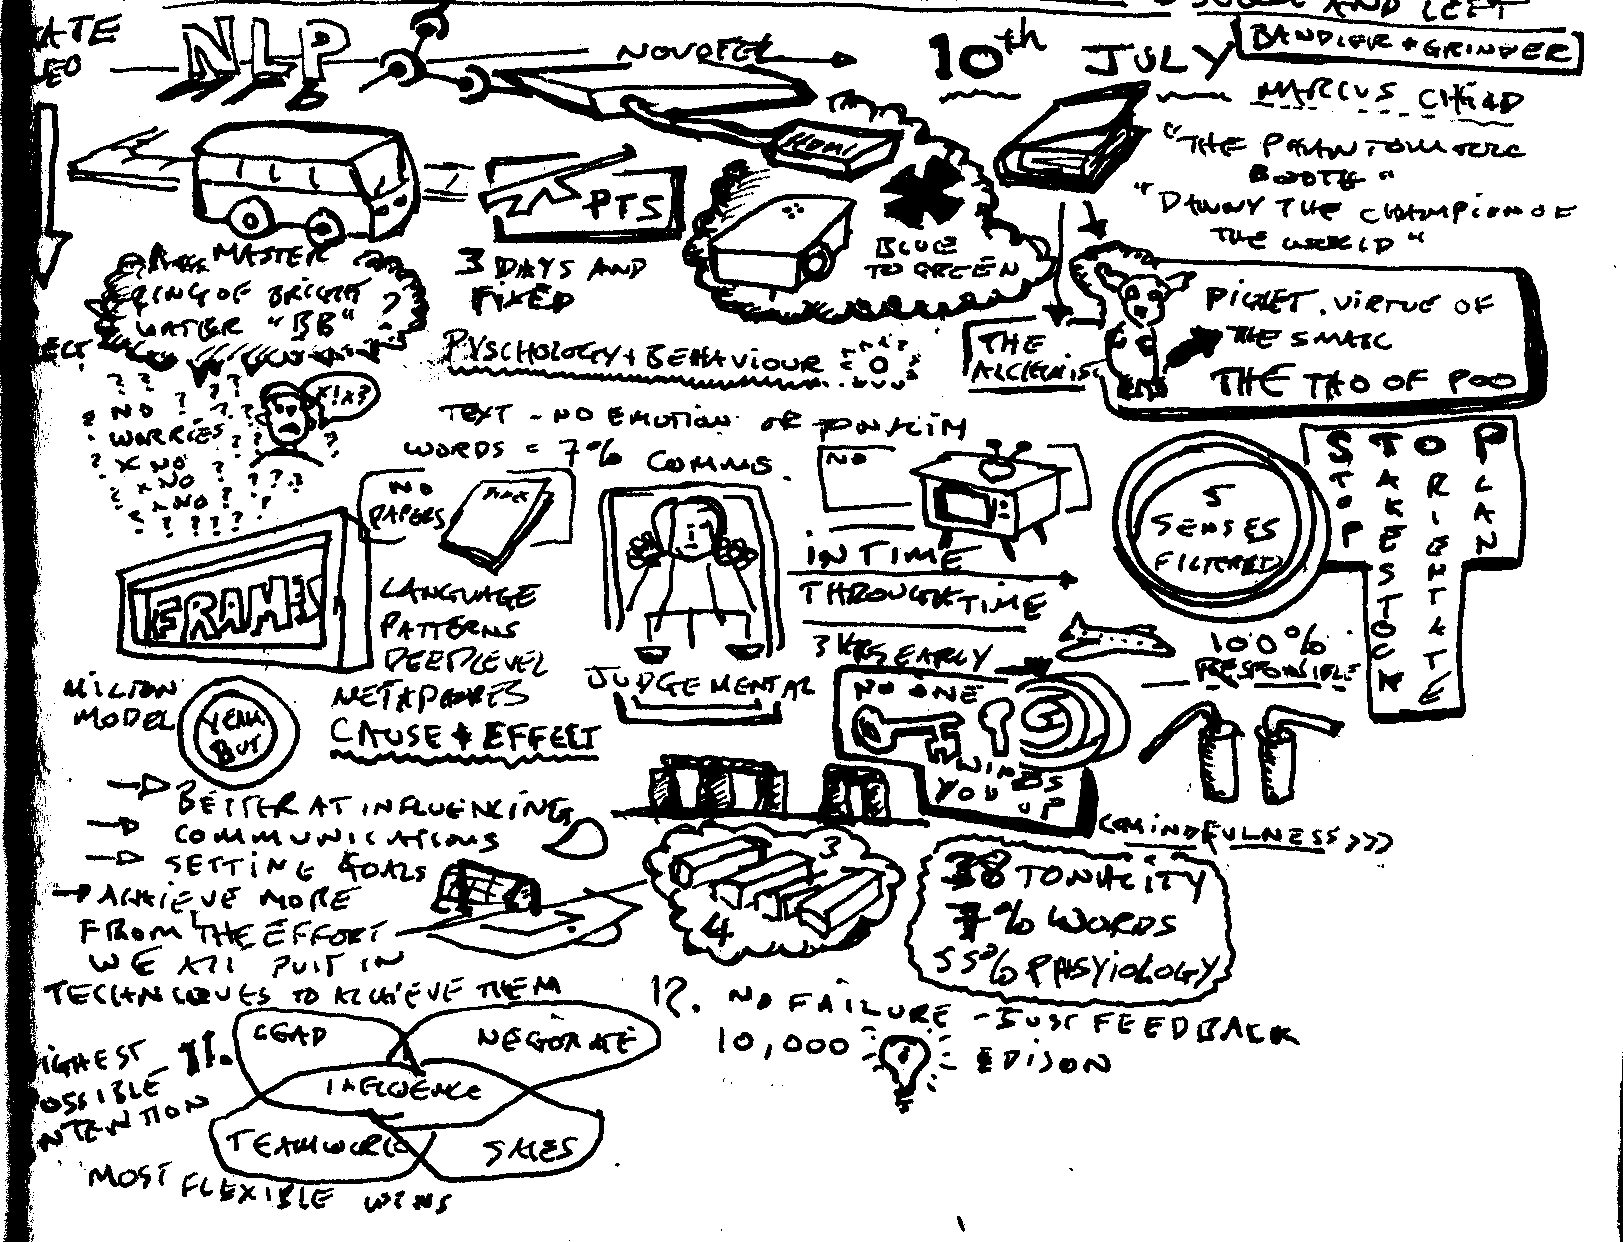 AND LEFT
NLP
NOVOTEL
10th JULY
BANDLER + GRINDER
MARCUS CHAD
HDMI
PTS
3 DAYS AND
FIXED
BLUE
TO GREEN
BOOTH"
"DANNY THE CHAMPION OF
THE WORLD"
MASTER
RING OF BRIGHT
WATER "BB" ?
PIGLET. VIRTUE OF
THE SMALL
THE TAO OF POO
THE
PYSCHOLOGY + BEHAVIOUR
X!X?
? NO ?
WORRIES
X NO
X NO
X NO
TEXT - NO EMOTION OR
WORDS = 7% COMMS
NO
PAPERS
NO
5
SENSES
FILTERED
STOP
STOP
TAKE STOCK
ORIENTATE
PLAN
IN TIME
THROUGH TIME
3 HRS EARLY
100%
RESPONSIBLE
FRAMES
LANGUAGE
PATTERNS
DEEP LEVEL
METAPHORES
CAUSE + EFFECT
JUDGEMENTAL
MILTON
MODEL
YEAH
BUT
NO ONE
WINDS
YOU UP
BETTER AT INFLUENCING
COMMUNICATIONS
SETTING GOALS
ACHIEVE MORE
FROM THE EFFORT
WE ALL PUT IN
TECHNIQUES TO ACHIEVE THEM
3
4
MINDFULNESS >>>
38 TONALITY
7% WORDS
55% PHSYIOLOGY
12. NO FAILURE - JUST FEEDBACK
10,000
EDISON
11.
LEAD
NEGOTIATE
INFLUENCE
TEAMWORK
SALES
MOST FLEXIBLE WINS